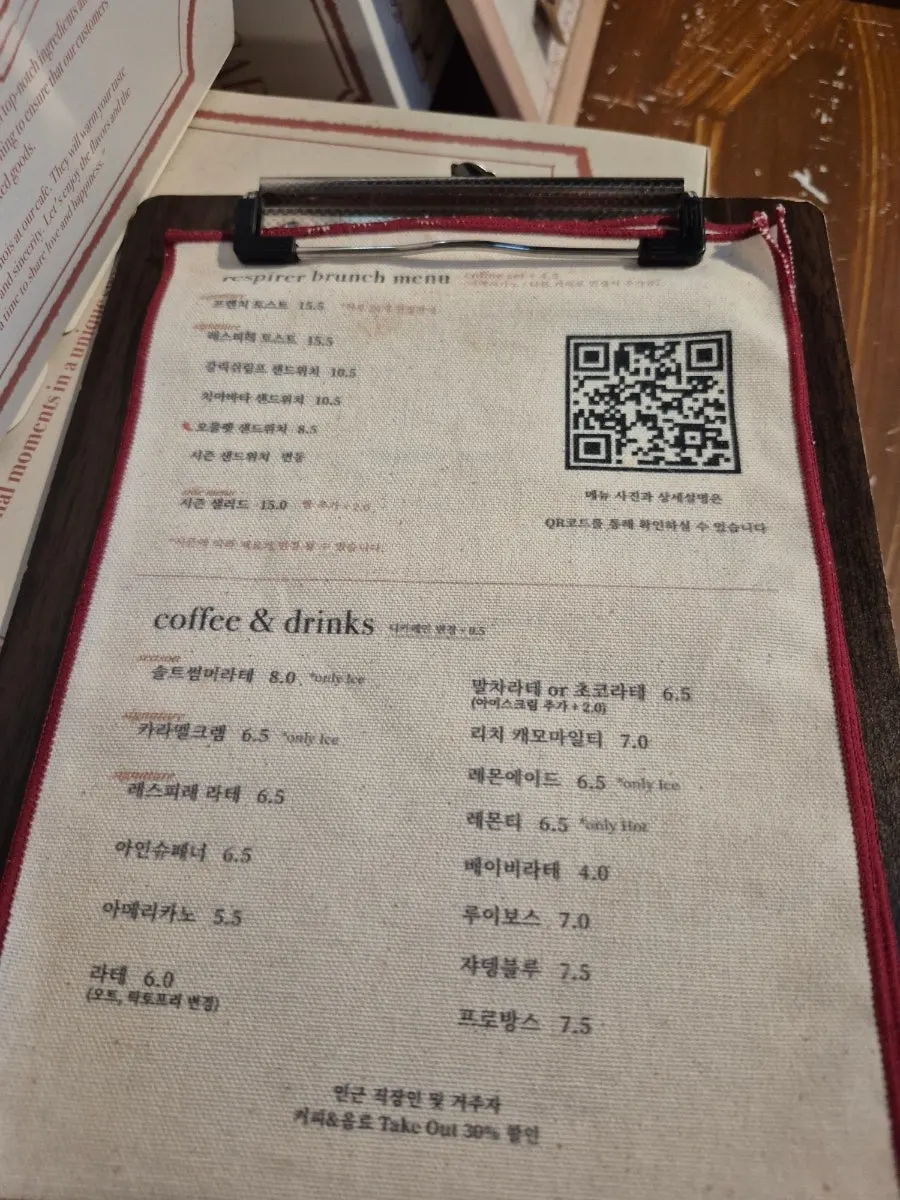 top-notch ingredients
ning to ensure that our customers
ed goods.
nois at our cafe. They will warm your taste
and sincerity. Let's enjoy the flavors and the
a time to share love and happiness."
nal moments in a unique
respirer brunch menu
coffee set + 4.5
signature
프렌치 토스트 15.5
signature
레스피레 토스트 15.5
갈릭쉬림프 샌드위치 10.5
치아바타 샌드위치 10.5
오믈렛 샌드위치 8.5
시즌 샌드위치 변동
side menu
시즌 샐러드 15.0 빵 추가 + 2.0
*시즌에 따라 재료가 변경 될 수 있습니다.
메뉴 사진과 상세설명은
QR코드를 통해 확인하실 수 있습니다
coffee & drinks 디카페인 변경 + 0.5
season
솔트썸머라테 8.0 *only Ice
signature
카라멜크렘 6.5 *only Ice
signature
레스피레 라테 6.5
아인슈페너 6.5
아메리카노 5.5
라테 6.0
(오트, 락토프리 변경)
말차라테 or 초코라테 6.5
(아이스크림 추가 + 2.0)
리치 캐모마일티 7.0
레몬에이드 6.5 *only Ice
레몬티 6.5 *only Hot
베이비라테 4.0
루이보스 7.0
쟈뎅블루 7.5
프로방스 7.5
인근 직장인 및 거주자
커피&음료 Take Out 30% 할인